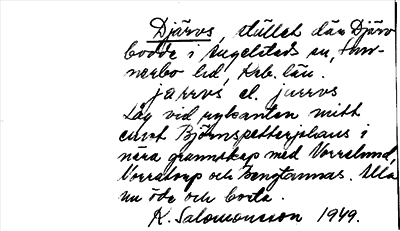 Djärvs, stället där Djärv
bodde i Angelstads sn, Sun-
nerbo hd, Krb. län.
jarrvs el. jærrvs
Låg vid sykanten mitt
emot Björnspetterjohans i
nära grannskap med Norrelund,
Norratorp och Bengtannas. Alla
nu öde och borta.
K. Salomonsson 1949.